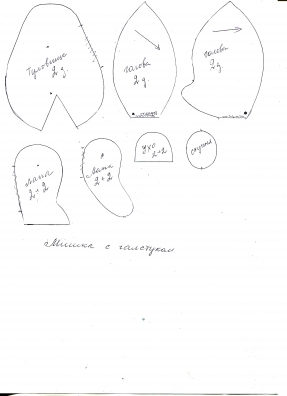 Туловище
2 д.
голова
2 д.
голова
2 д.
Лапа
2+2
Лапа
2+2
Ухо
2+2
ступня
Мишка с галстуком